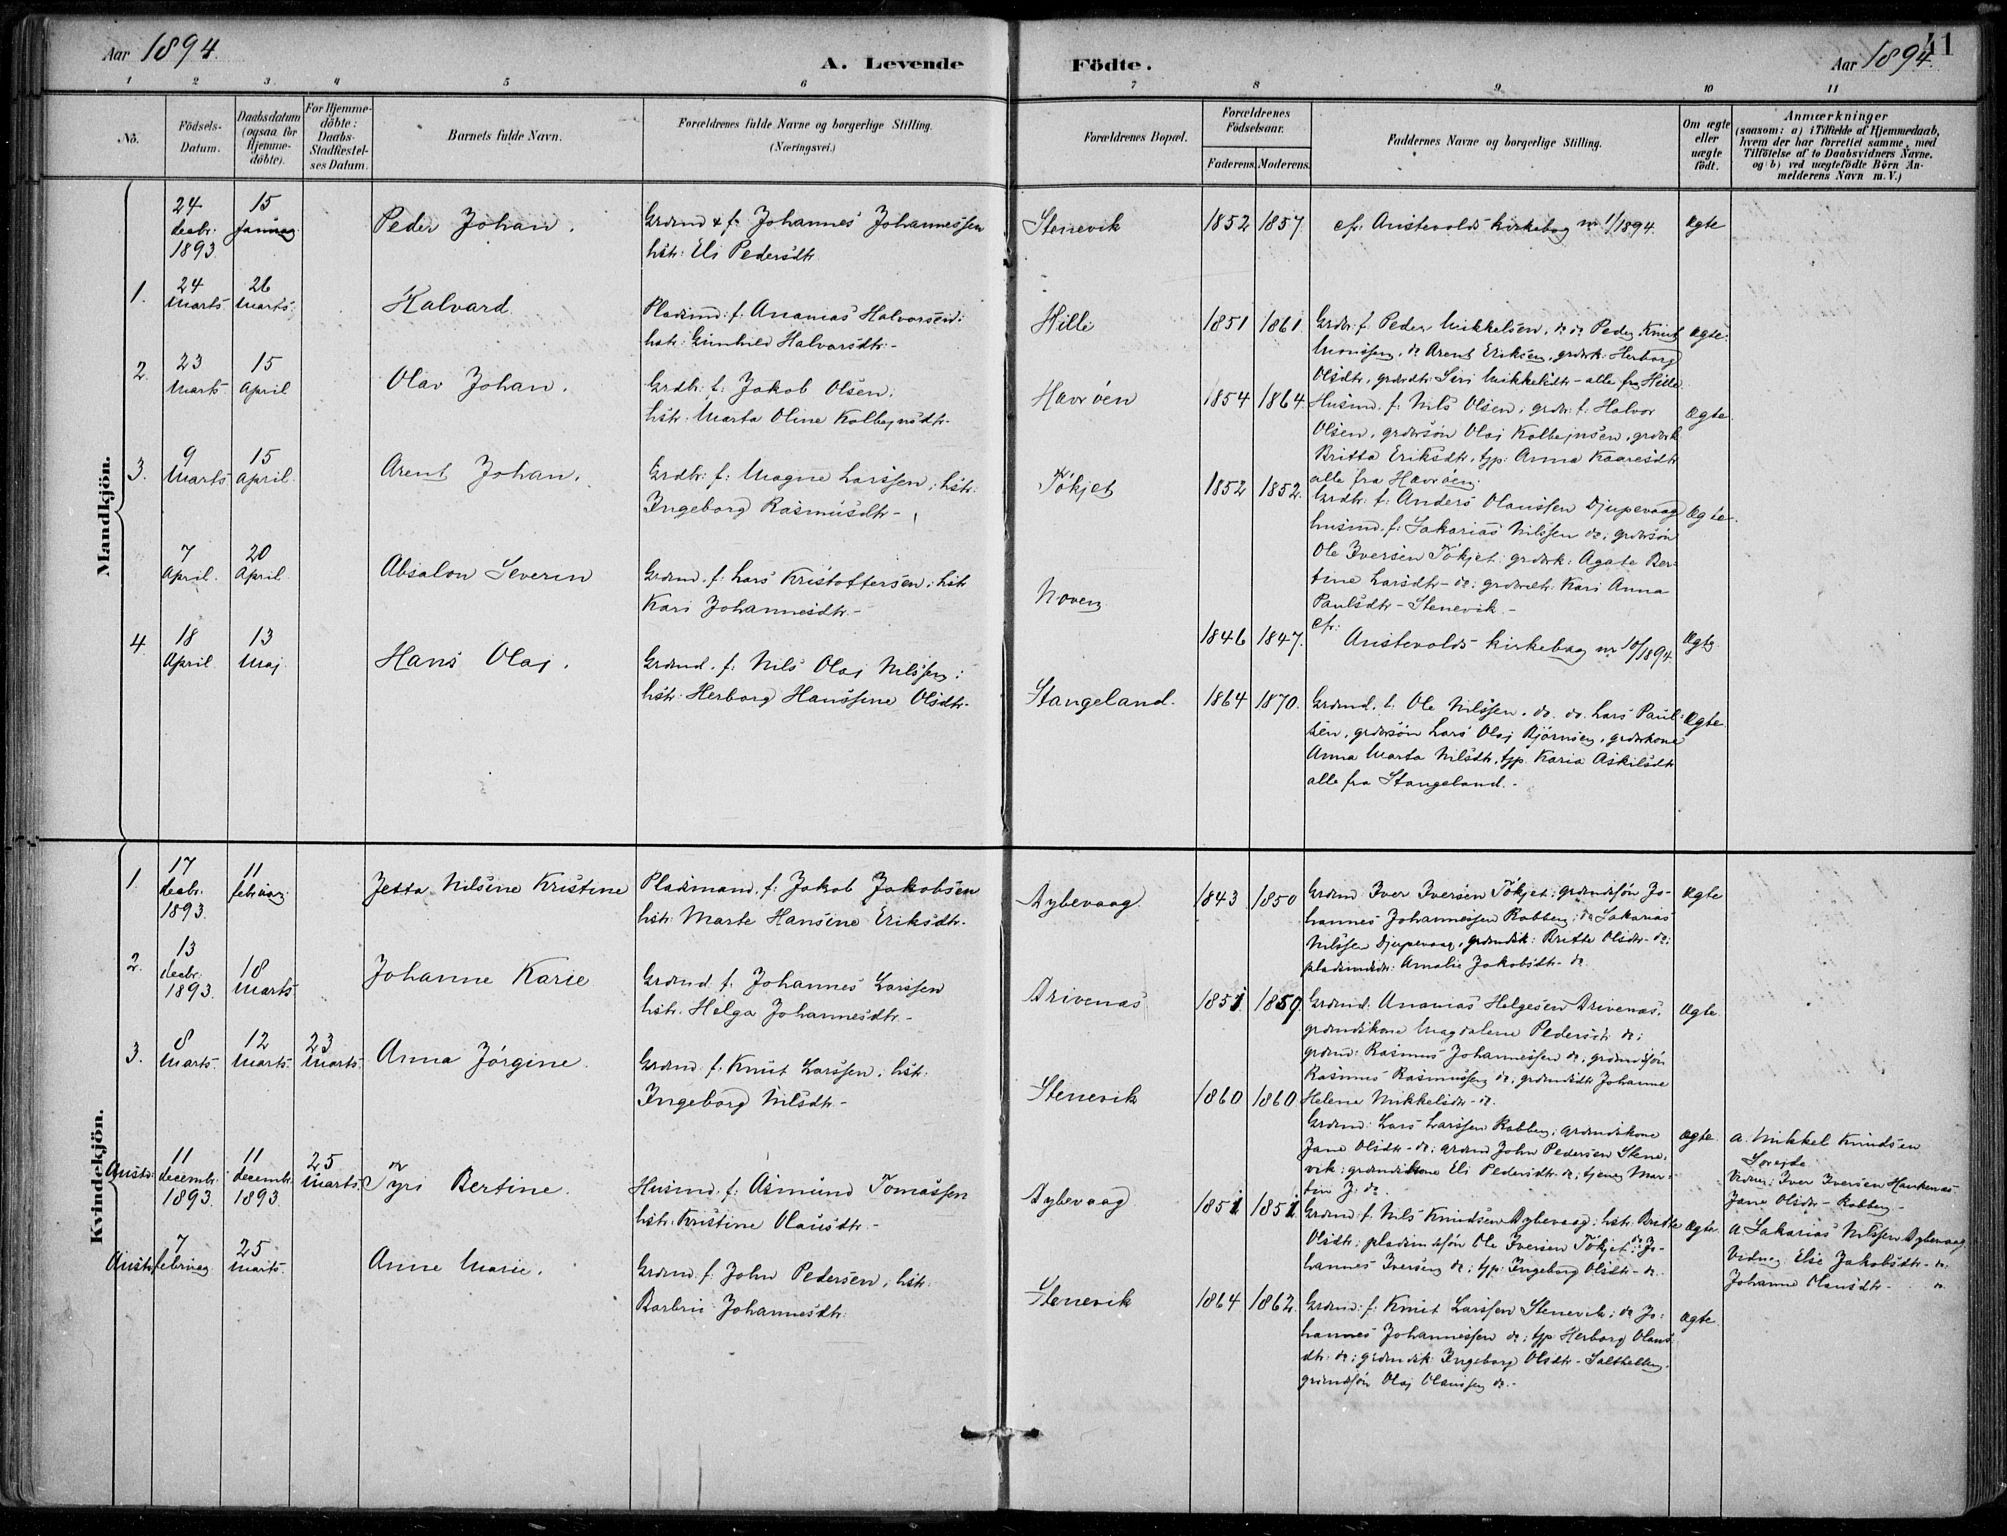 Aar 1894.
A. Levende Födte.
Aar 1894.
41
1 2 3. 4 5 6 7 8 9 10 11
Nö.
Födsels-Datum.
Daabsdatum (ogsaa for Hjemmedöbte).
For Hjemmedöbte: Daabs-Stadfæstelses Datum.
Barnets fulde Navn.
Forældrenes fulde Navne og borgerlige Stilling. (Næringsvei.)
Forældrenes Bopæl.
Forældrenes Födselsaar.
Faderens. Moderens.
Faddernes Navne og borgerlige Stilling.
Om ægte eller uægte födt.
Anmærkninger
(saasom: a) i Tilfælde af Hjemmedaab, hvem der har forrettet samme, med Tilföielse af to Daabsvidners Navne, og b) ved uægtefödte Börn Anmelderens Navn m. V.)
Mandkjön.
24 decbr. 1893 15 Januar Peder Johan.
Grdmd & f. Johannes Johannessen
hstr: Eli Pedersdtr
Stenevik 1852 1857. cfr. Austevolds kirkebog nr 1/1894. Ægte
1. 24 Marts 26 Marts. Halvard
Pladsmd: f. Ananias Halvorsen:
hstr: Gunhild Halvarsdtr.-
Hille 1851 1861. Grdbr. f. Peder Mikkelsen, do do Peder Knut
Monssen, do Arent Eriksen, grdbrk: Herborg
Olsdtr, grdbrdtr: Siri Mikkelsdtr - alle fra Hille. Ægte.
2. 23 Marts 15 April Olav Johan.
Grdbr: f: Jakob Olsen.
hstr: Marta Oline Kolbejnsdtr-
Havröen 1854 1864. Husmd. f: Nils Olsen, grdbr: f: Halvor
Olsen, grdbrsön Olaj Kolbejnsen, grdbrk
Britta Eriksdtr, tjp: Anna Kaaresdtr
alle fra Havröen. Ægte.
3. 9 Marts 15 April. Arent Johan.
Grdbr: f: Magne Larssen; hstr:
Ingeborg Rasmusdtr-
Tökjet 1852 1852. Grdbr: f: Anders Olaussen Djupevaag
husmd. f: Sakarias Nilssen do; grdbrsön
Ole Iversen Tökjet: grdbrk: Agate Ber-
tine Larsdtr- do; grdbrdtr: Kari Anna
Paulsdtr- Stenevik.- Ægte.
7 April. 20 April. Absalon Severin
Grdmd. f: Lars Kristoffersen; hstr
Kari Johannesdtr.-
1846 1847. cfr: Austevolds kirkebog nr 10/1894. Ægte
4. 18 April 13 Maj. Hans Olaj.
Grdmd. f: Nils Olaj Nilssen;
hstr: Herborg Hanssine Olsdtr-
Stangeland. 1864 1870. Grdmd. f: Ole Nilssen, do. do. Lars Paul-
sen, grdbrsön Lars Olaj Björnsen, grdbrkone
Anna Marta Nilsdtr, tjp. Karia Askilsdtr
alle fra Stangeland.- Ægte.
Kvindekjön.
1. 17 decbr. 1893. 11 februar. Jetta Nilsine Kristine
Pladsmand. f: Jakob Jakobsen
hstr: Marte Hansine Eriksdtr.
Dybevaag. 1843 1850 Grdmd Iver Iversen Tökjet: grdmdsön Jo-
hannes Johannessen Rabben; do Sakarias
Nilssen Djupevaag, grdmdsk: Britte Olsdtr- do;
pladsmdsdtr: Amalie Jakobsdtr- do. Ægte
2. 13 decbr. 1893. 18 Marts Johanne Karie
Grdmd f: Johannes Larssen
hstr. Helga Johannesdtr.-
Drivenas 1851. 1859. Grdmd: Ananias Helgesen Drivenas,
grdmdskone Magdalene Pedersdtr do;
grdmd: Rasmus Johannessen do, grdmdsön
Rasmus Rasmussen do; grdmdsdtr Johanne
Helene Mikkelsdtr- do. Ægte.
3. 8 Marts. 12 Marts. 23 Marts. Anna Jörgine.
Grdmd. f: Knut Larssen, hstr:
Ingeborg Nilsdtr-
Stenevik 1860 1860. Grdmd: Lars Larssen Rabben, grdmdskone
Jane Olsdtr- do; grdmd John Pedersen Stene-
vik; grdmdskone Eli Pedersdtr- do; tjener Mar-
tin J. do. Ægte.
a. Mikkel Knudsen
Vidner: Iver Iversen Haukenas
Jane Olsdtr- Rabben-
Austv. 11 decembr. 1893 11 decembr. 1893. 25 Marts. Syri Bertine.
Husmd. f: Asmund Tomassen
hstr: Kristine Olausdtr.-
Dybevaag 1851 1851. Grdmd f. Nils Knudsen Dybevaag; hstr: Britte
Olsdtr; pladsmdsön Ole Iversen Tökjet: do Jo-
hannes Iversen do; tjp: Ingeborg Olsdtr- do. Ægte.
a. Sakarias Nilssen Dybevaag
Vidner Else Jakobsdtr- do:
Johanne Olausdtr- do
Austv. 7 februar 25 Marts. Anne Marie.
Grdmd: f: John Pedersen; hstr:
Barbrii Johannesdtr.
Stenevik 1864 1862. Grdmd: f: Knut Larssen Stenevik; do Jo-
hannes Johannessen do; tjp Herborg Olaus-
dtr- do; grdmdsk: Ingeborg Olsdtr-
grdmdsön Olaj Olaussen do.- Ægte.